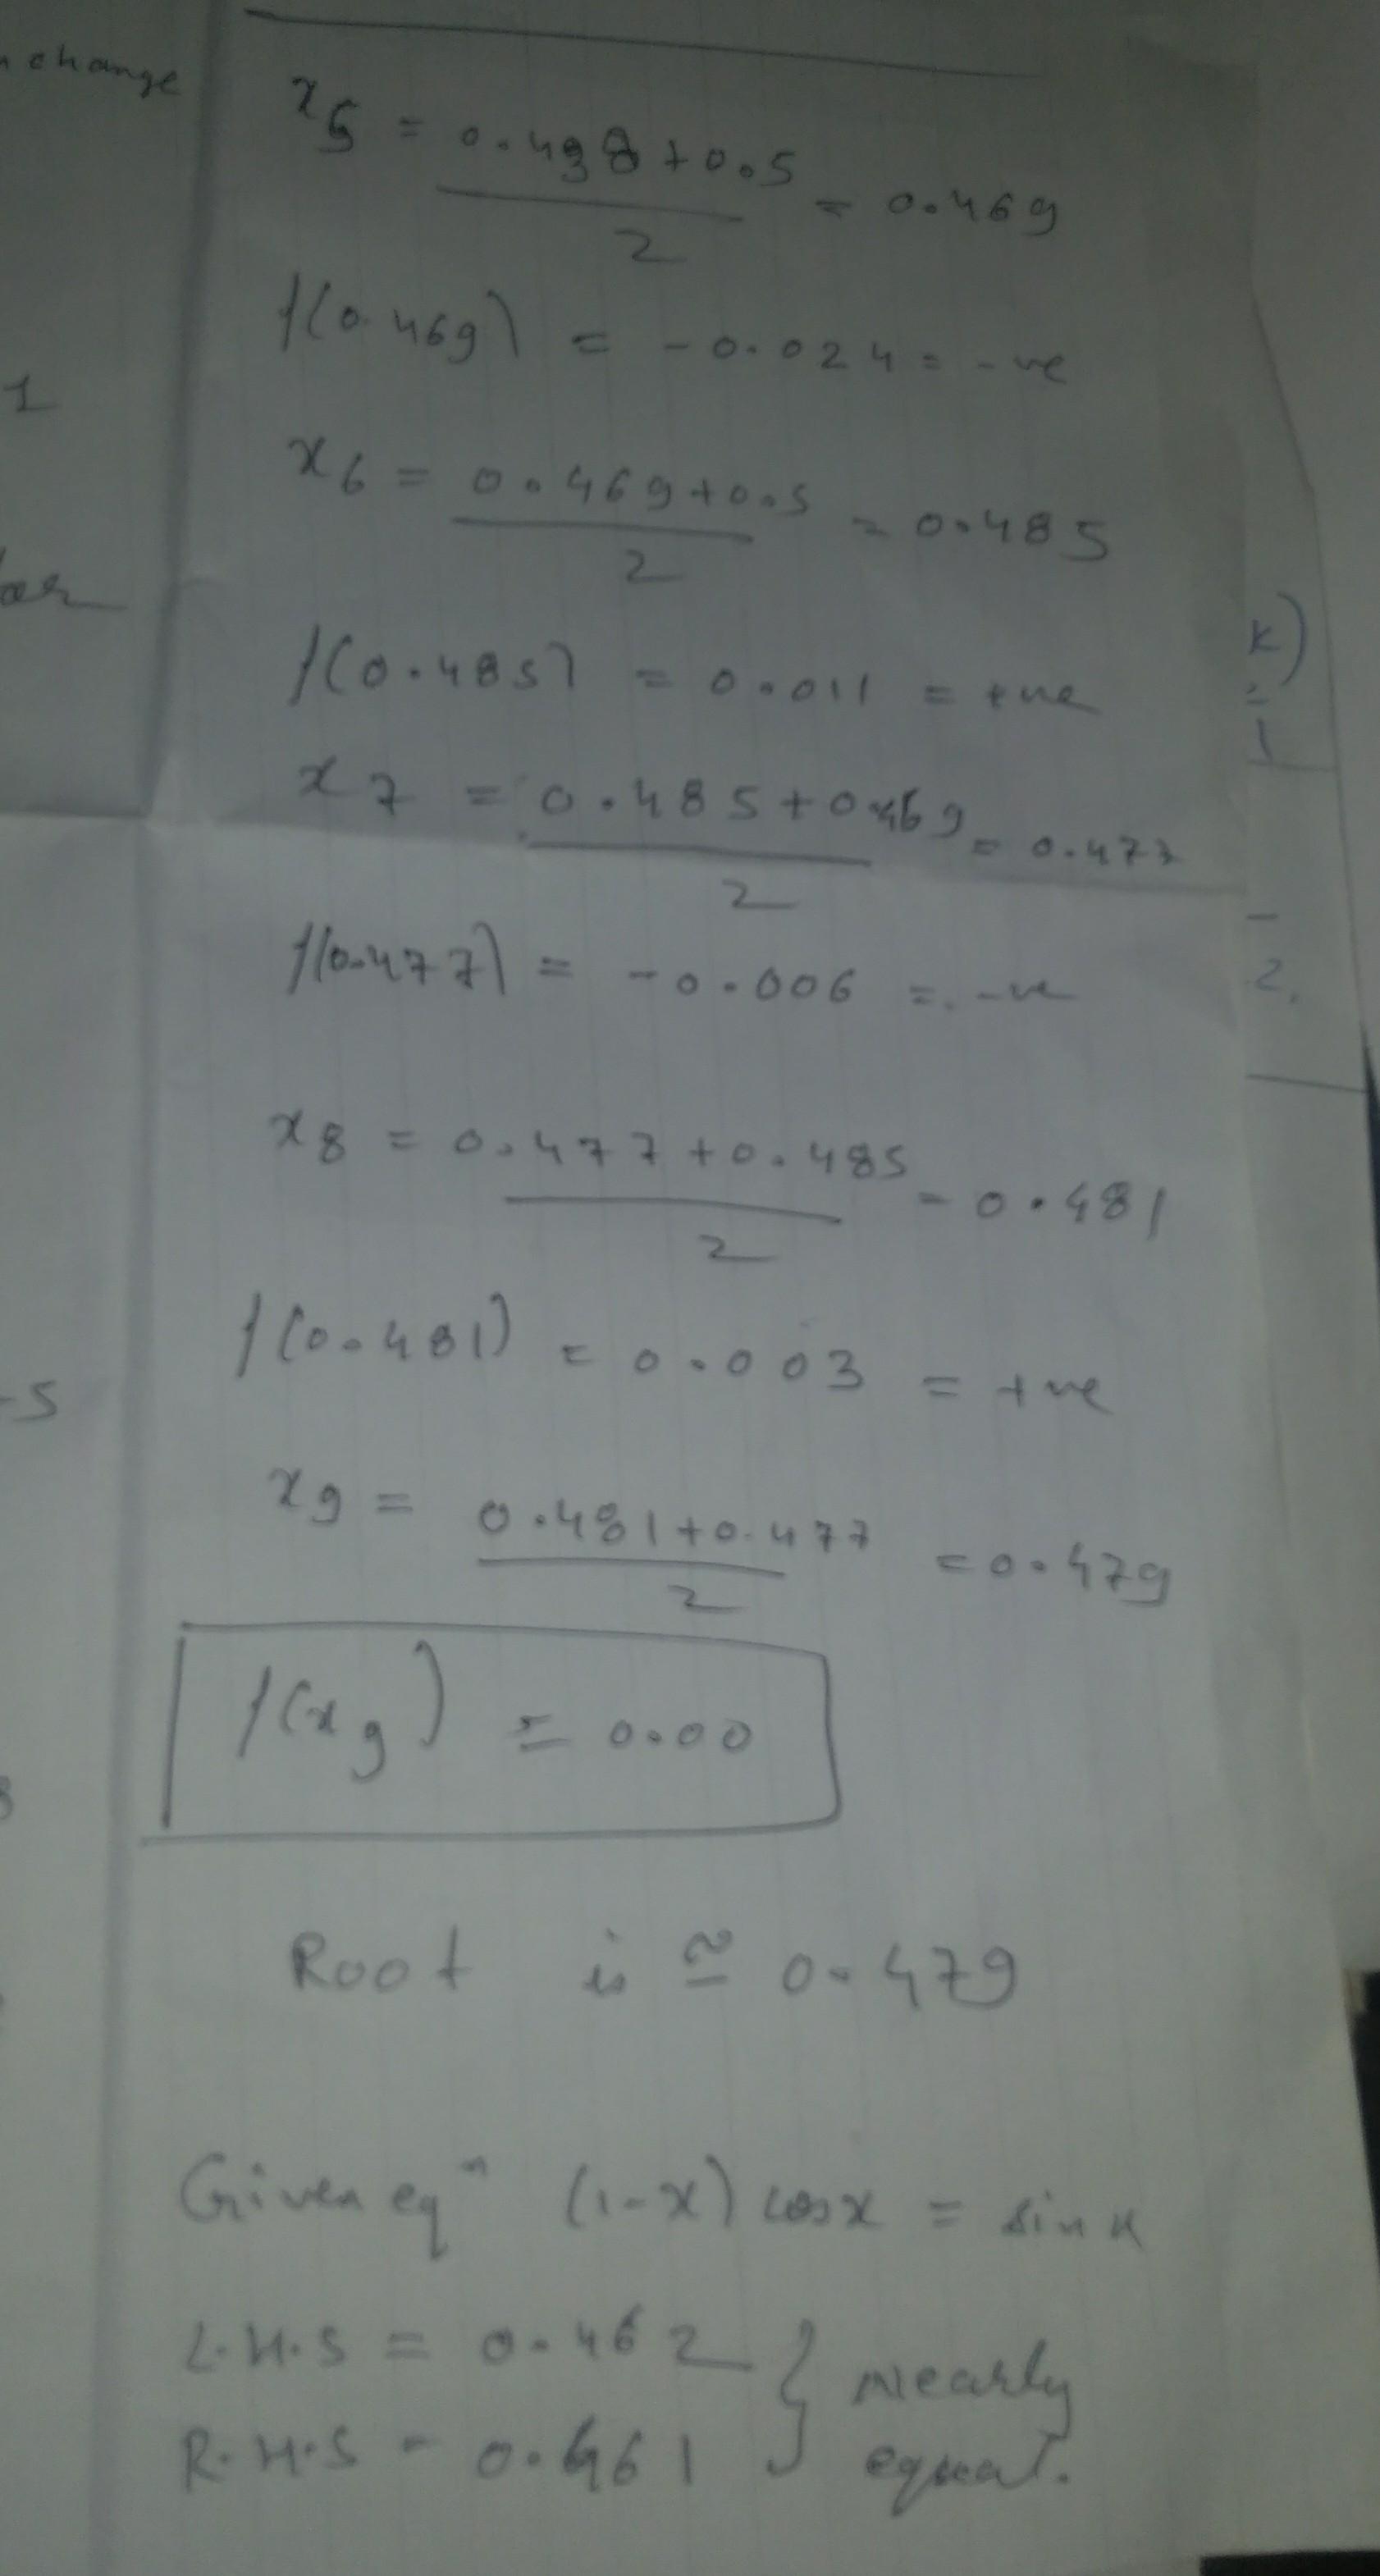 n change
x5 = 0.438 + 0.5 = 0.469
2
f(0.469) = -0.024 = -ve
1
x6 = 0.469+0.5 = 0.485
2
f(0.485) = 0.011 = +ve
x)
1
x7 = 0.485+0.469 = 0.477
2
f(0.477) = -0.006 = -ve
2.
x8 = 0.477+0.485 = 0.481
2
f(0.481) = 0.003 = +ve
-5
x9 = 0.481+0.477 = 0.479
2
f(x9) ≃ 0.00
Root is ≅ 0.479
Given eqn (1-x) cosx = sinx
L.H.S = 0.462 } Nearly
R.H.S = 0.461 equal.